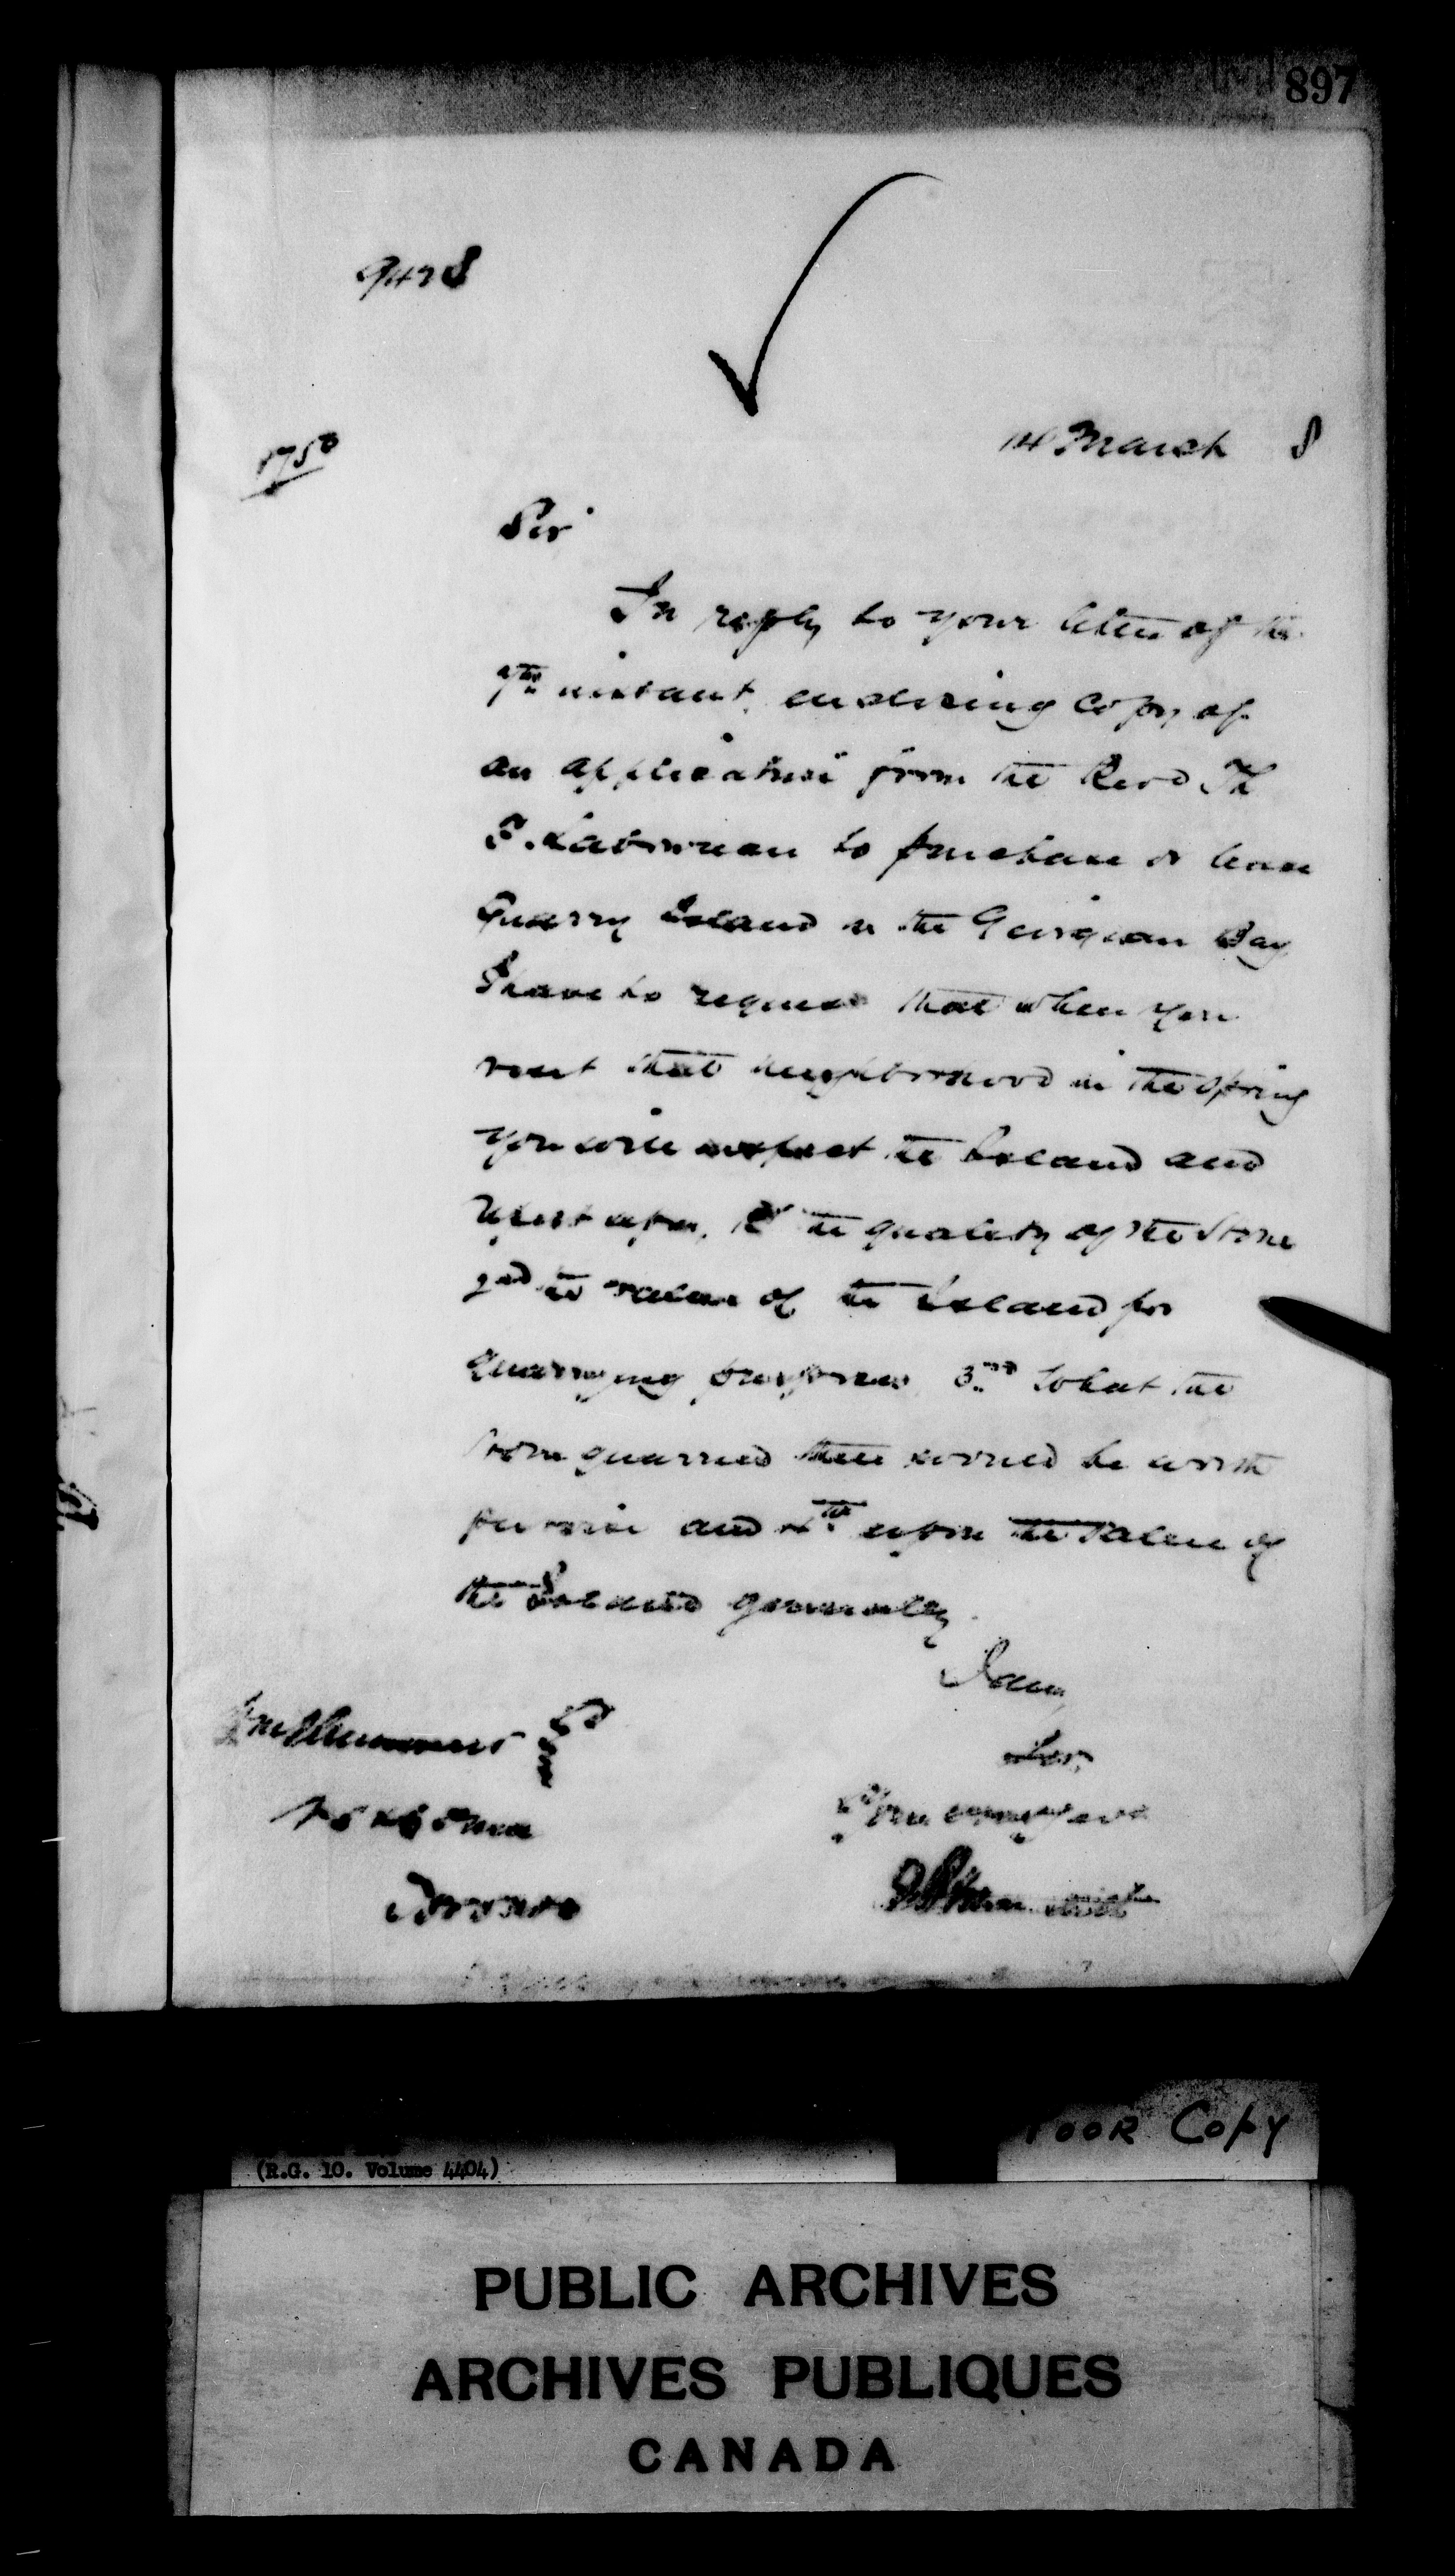 897
9428
1750
14 March 8
Sir
In reply to your letter of the
7th instant, enclosing copy of
an application from the Revd Th
F. Laboureau to purchase or lease
Quarry Island in the Georgian Bay
I have to request that when you
visit that neighborhood in the Spring
you will inspect the Island and
report upon, 1st the quality of the Stone
2nd the value of the Island for
quarrying purposes 3rd What the
stone quarried there would be worth
and 4th upon the value of
the Island generally.
I am,
Sir,
Your
Wm Plummer Esq
Toronto
Poor Copy
(R.G. 10. Volume 4404)
PUBLIC ARCHIVES
ARCHIVES PUBLIQUES
CANADA